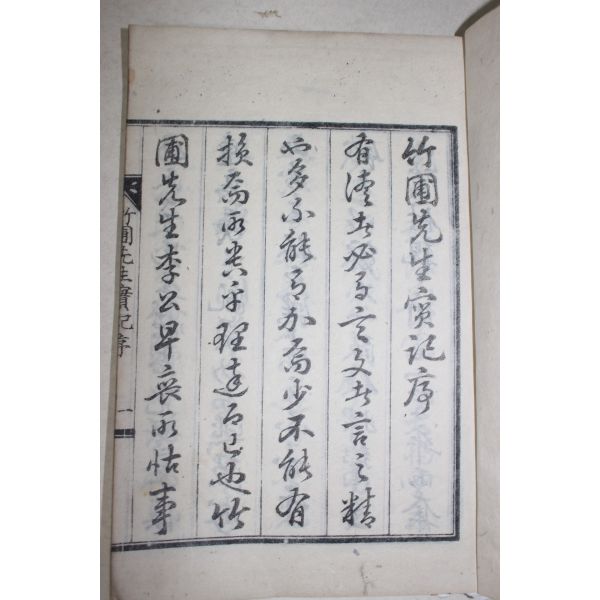 竹圃先生實記序
有德者必有言文者言之精
也多不能有加焉少不能有
損焉所貴乎理達而已也竹
圃先生李公早喪所怙事
竹圃先生實記序 一